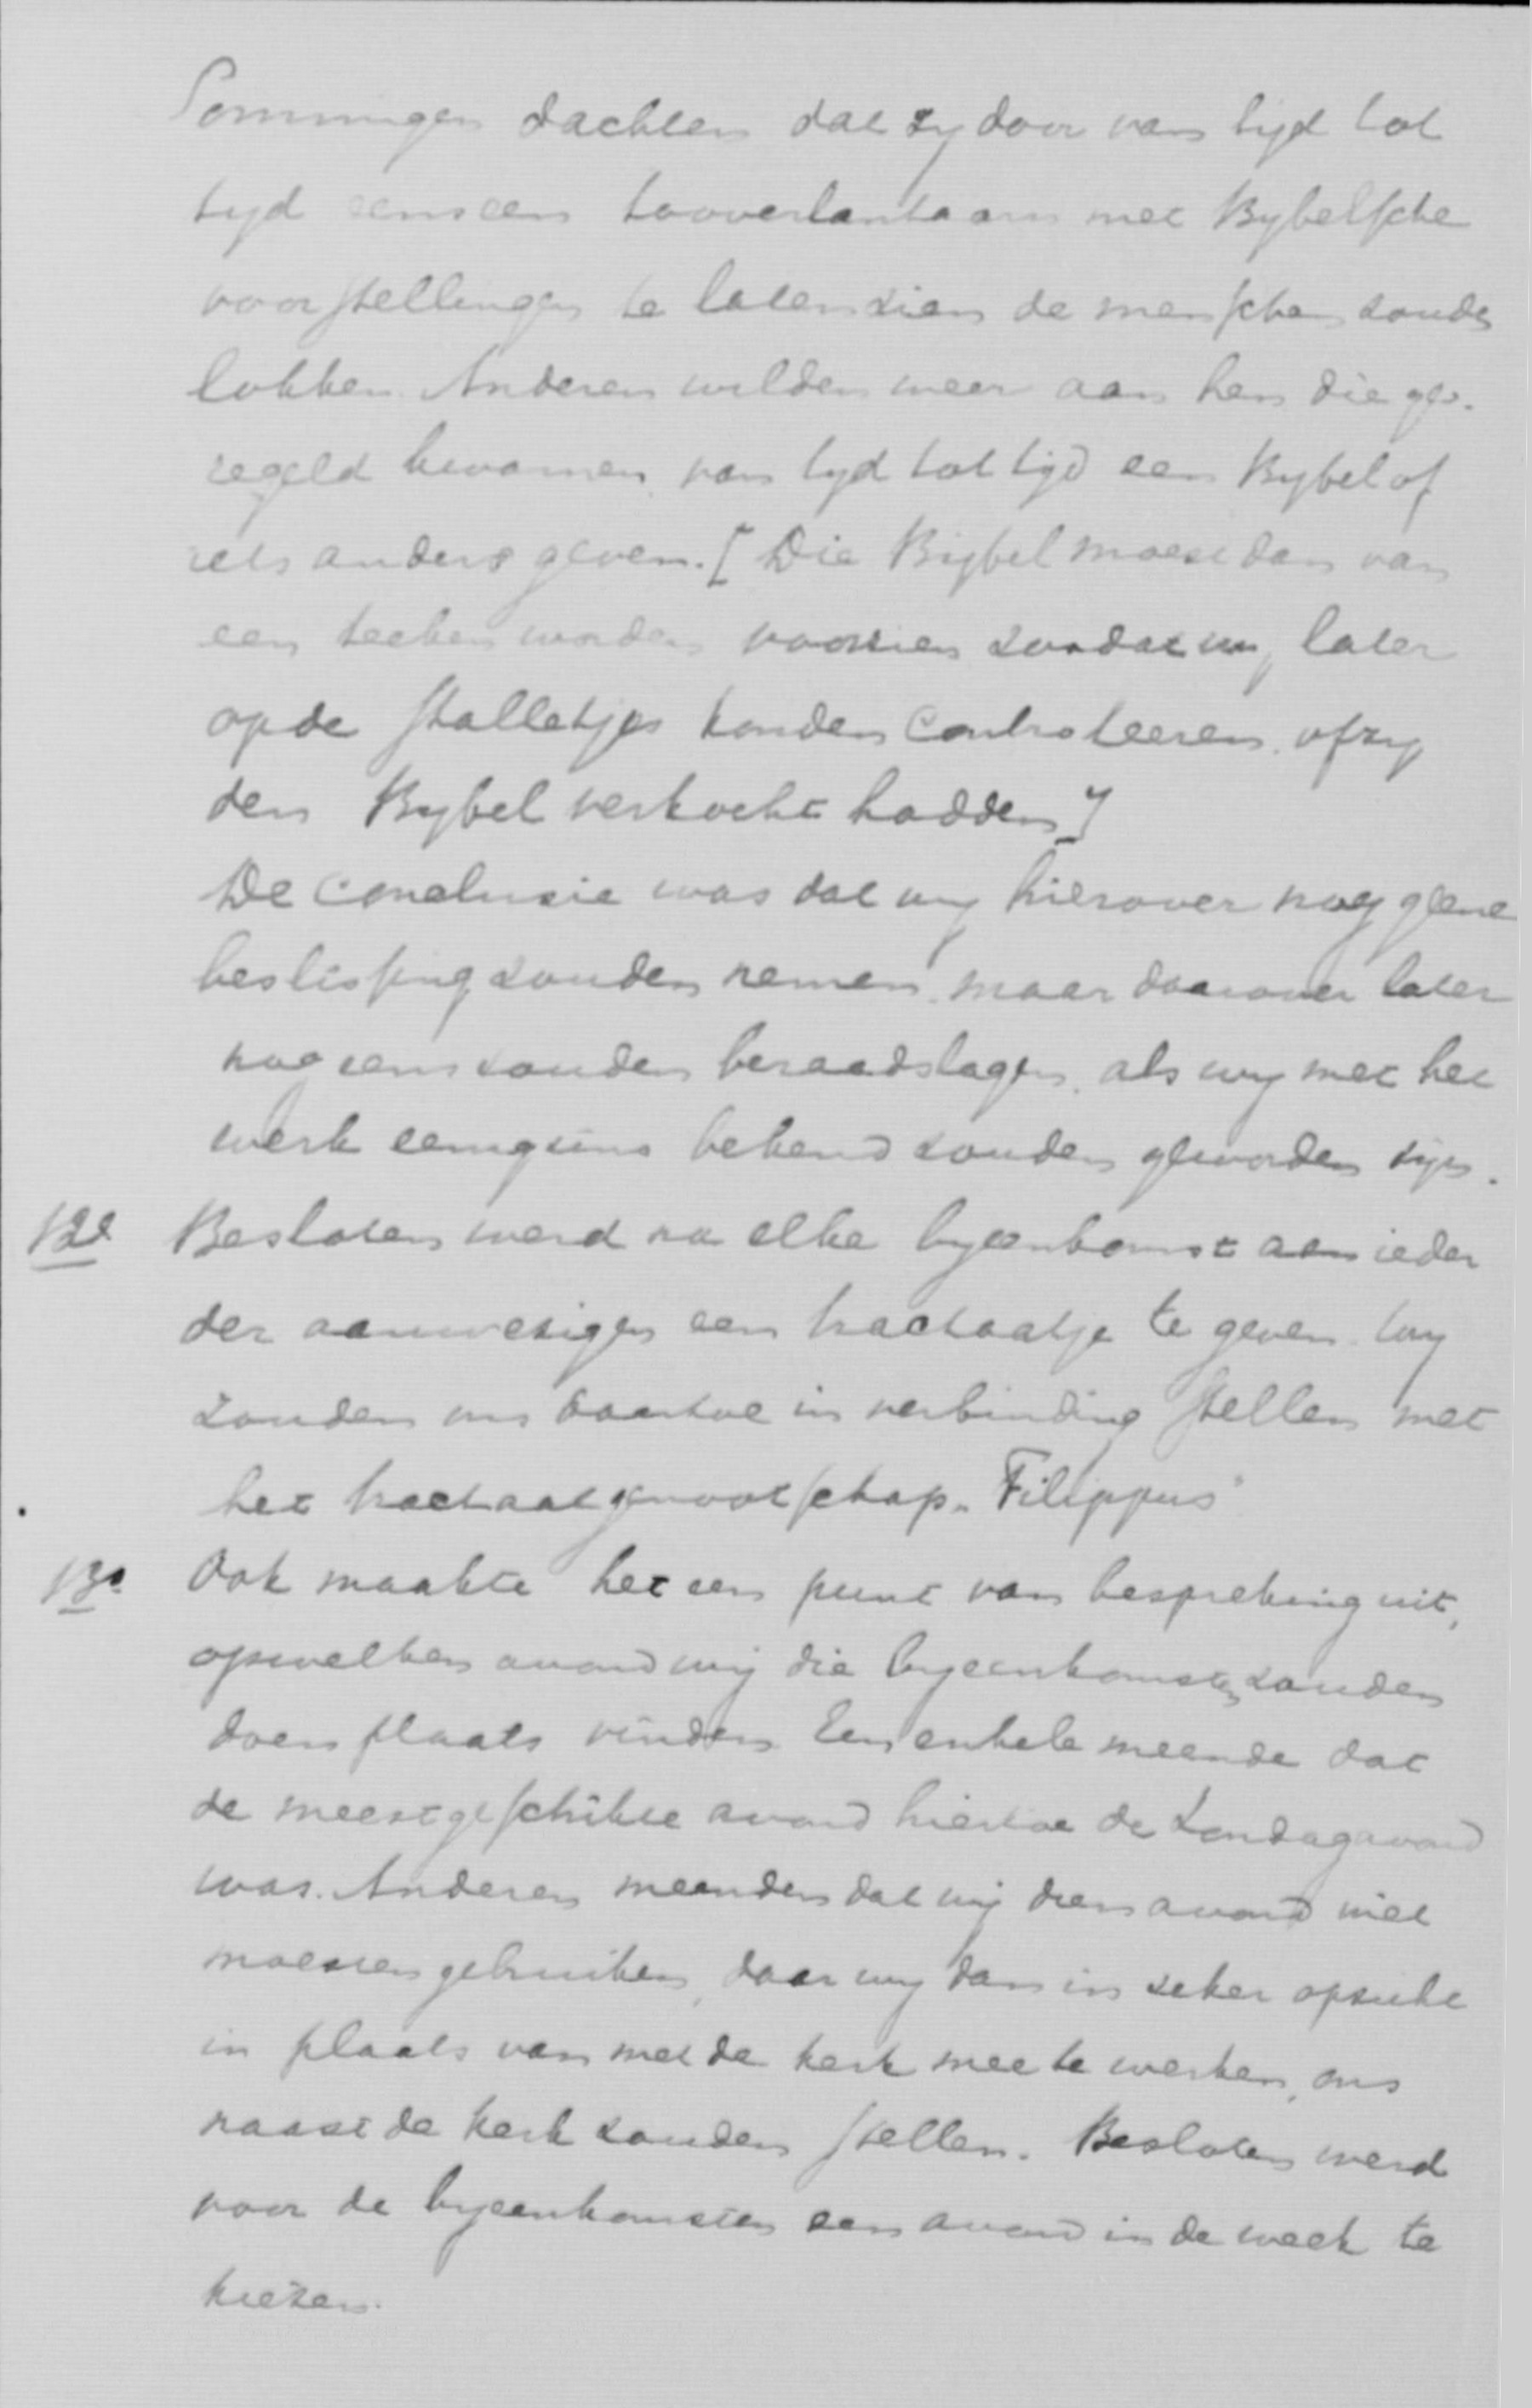 Sommigen dachten dat zy door van tyd tot
tyd eens een tooverlantaarn met Bybelsche
voorstellingen te laten zien de menschen zouden
lokken. Anderen wilden weer aan hen die ge-
regeld kwamen, van tyd tot tijd een Bybel of
iets anders geven. [Die Bijbel moest dan van
een teeken worden voorzien zoodat wy later
op de stalletjes konden Controleeren, of zy
den Bybel verkocht hadden]
De Conclusie was dat wy hierover nog geene
beslissing zouden nemen, maar daarover later
nog eens zouden beraadslagen, als wy met het
werk eenigzins bekend zouden geworden zijn.
12e Besloten werd na elke byeenkomst aan ieder
der aanwezigen een tractaatje te geven. Wy
zouden ons daartoe in verbinding stellen met
het tractaatgenootschap „Filippus"
13e Ook maakte het een punt van bespreking uit,
op welken avond wij die byeenkomsten zouden
doen plaats vinden. Een enkele meende dat
de meest geschikte avond hiertoe de Zondagavond
was. Anderen meenden dat wij dien avond niet
moesten gebruiken, daar wy dan in zeker opzicht
in plaats van met de kerk mee te werken, ons
naast de kerk zouden stellen. Besloten werd
voor de byeenkomsten een avond in de week te
kiezen.